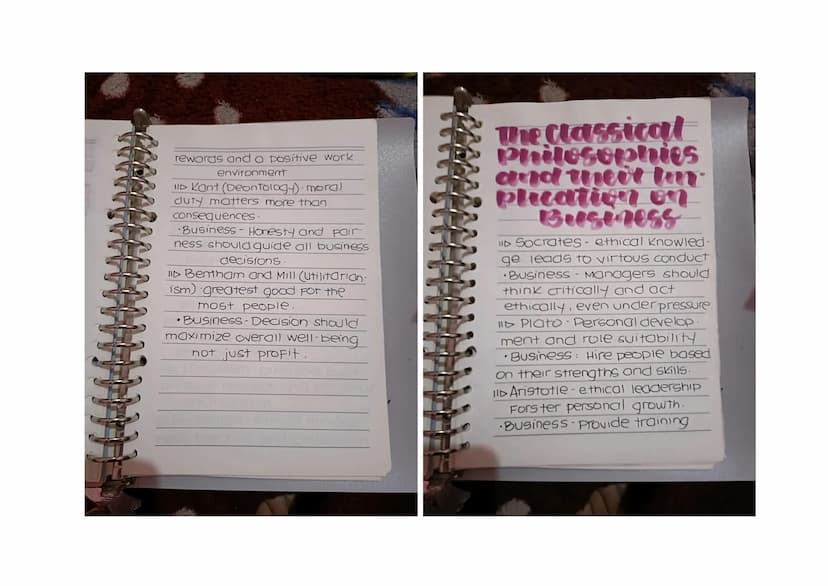 rewards and a positive work
environment
⇒ Kant (Deontology) - moral
duty matters more than
consequences.
•Business - Honesty and fair
ness should guide all business
decisions.
⇒ Bentham and Mill (Utilitarian-
ism) - greatest good for the
most people.
• Business - Decision should
maximize overall well-being
not just profit.
The Classical
Philosophies
and their Im-
plication on
Business
⇒ Socrates - ethical knowled-
ge leads to virtous conduct
•Business - Managers should
think critically and act
ethically, even under pressure
⇒ Plato - Personal develop
ment and role suitability
•Business : Hire people based
on their strengths and skills.
⇒ Aristotle - ethical leadership
Forster personal growth.
•Business - Provide training